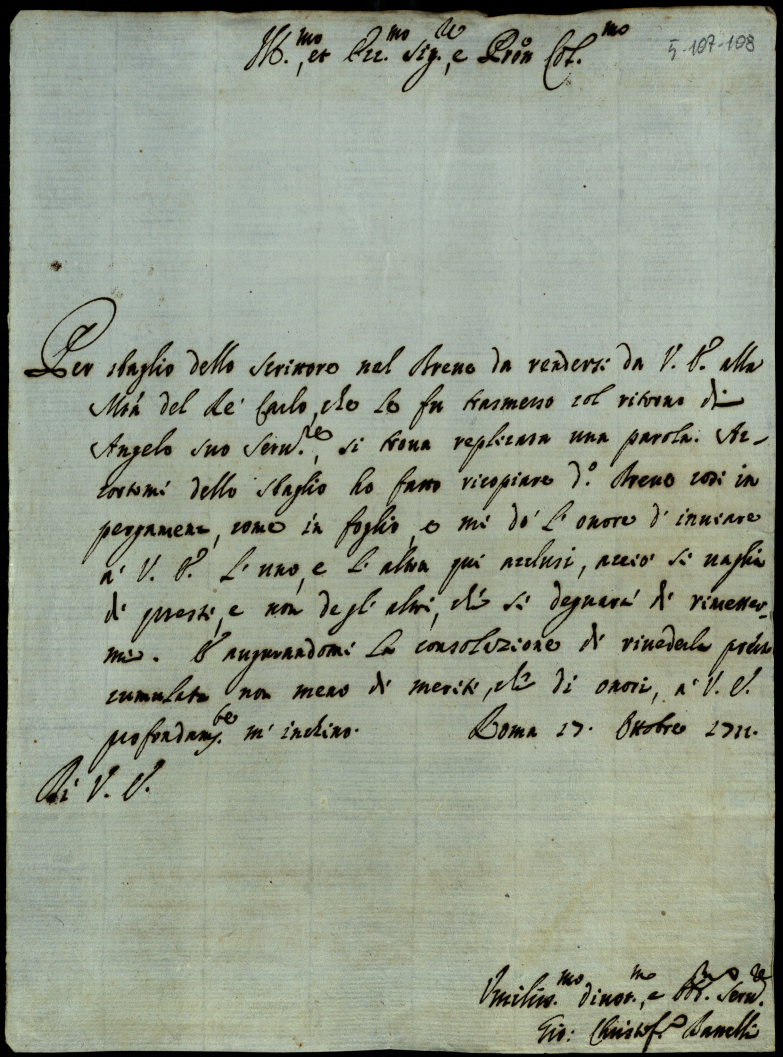 Ill.mo, et Ecc.mo Sig.re, e Pron Col.mo
5-107-108
Per sbaglio dello Scrittore nel Breve da rendersi da V. E. alla
Mtà del Rè Carlo, che Le fu trasmesso col ritorno di
Angelo suo Serv.re, si troua replicata una parola. Ac-
cortomi dello sbaglio ho fatto ricopiare d.o Breve così in
pergamena, come in foglio, e mi dò l'onore d'inuiare
à V. E. l'uno, e l'altro qui acclusi, acciò si uaglia
di questi, e non degli altri, chè si degnarà di rimetter-
mi. E augurandomi la consolazione di riuederla presto
cumulata non meno di meriti, chè di onori, à V. E.
profondam.te m'inchino. Roma 17. Ottobre 1711.
Di V. E.
Umiliss.mo diuot.mo, e Serv.re
Gio: Christof.o Battelli